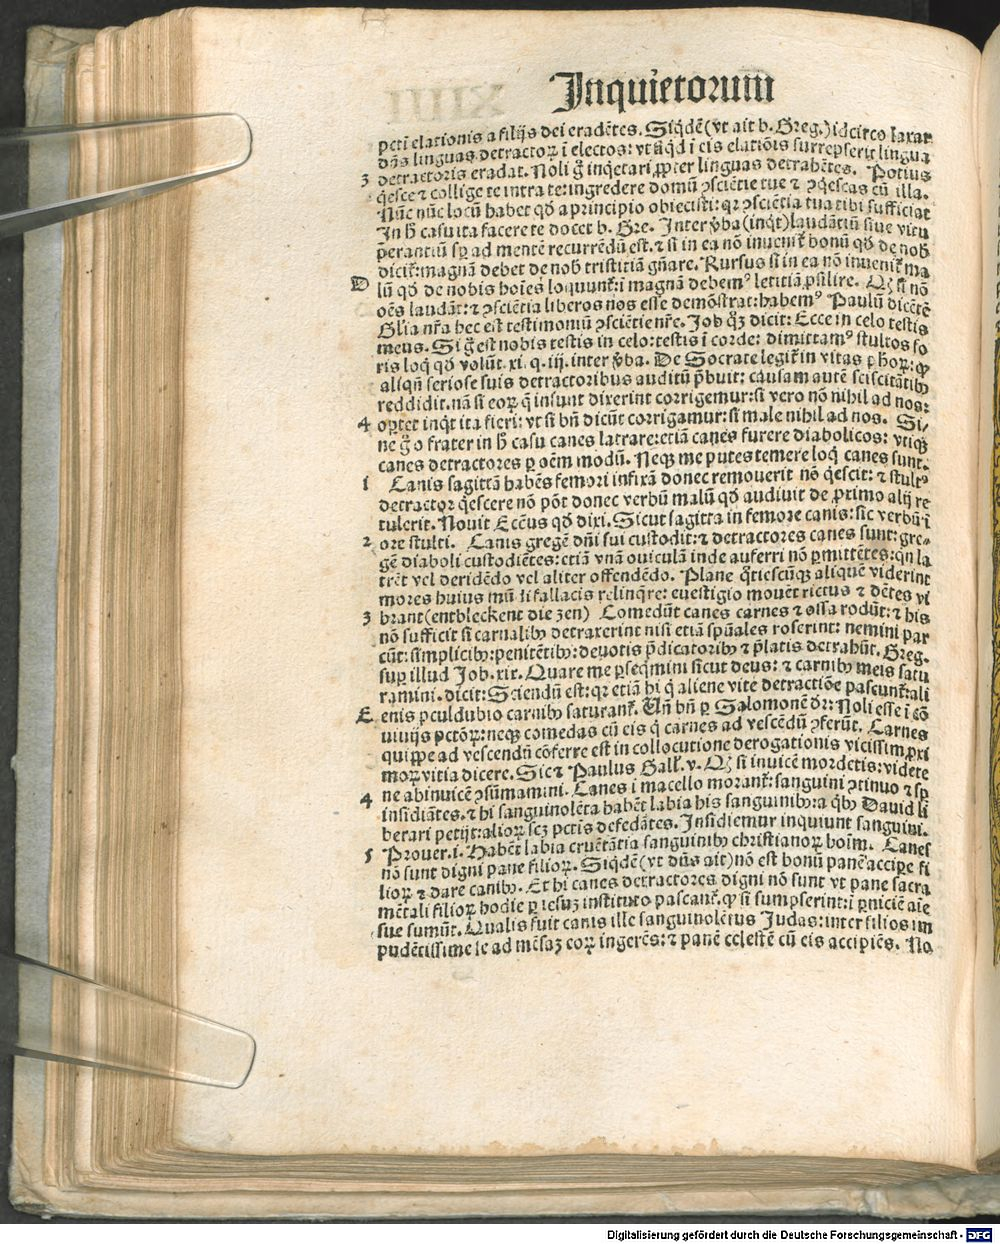 Inquietorum
peti elationis a filijs dei eradētes. Siqdē (vt ait b. Greg.) idcirco laxat
dñs linguas detractoꝝ ī electos: vt siqd ī eis elatiōis surrepserit lingua
3 detractoris eradat. Noli g̃ inqetari ꝓpter linguas detrahētes. Potius
qesce ⁊ collige te intra te: ingredere domū ꝯsciētie tue ⁊ ꝯqescas cū illa.
Nūc nūc locū habet qđ a principio obiecisti: qꝛ ꝯsciētia tua tibi sufficiat
In h̄ casu ita facere te docet b. Gre. Inter v̄ba (inqt) laudātiū siue vitu
perantiū sꝑ ad mentē recurrēdū est. ⁊ si in ea nō inuenit̄ bonū qđ de nob̄
dicit̄: magnā debet de nob̄ tristitiā gñare. Rursus si in ea nō inuenit̄ ma
D lū qđ de nobis hoīes loquunt̄: ī magnā debemꝰ letitiā ꝓsilire. Qꝫ si nō
oēs laudāt: ⁊ ꝯsciētia liberos nos esse demōstrat: habemꝰ Paulū dicētē
Gl̄ia nr̄a hec est testimoniū ꝯsciētie nr̄e. Job qꝫ dicit: Ecce in celo testis
meus. Si g̃ est nobis testis in celo: testis ī corde: dimittamꝰ stultos fo
ris loq qđ volūt. xi. q. iij. inter v̄ba. De Socrate legit̄ in vitas ph̄oꝝ: ꝙ
aliqñ seriose suis detractoribus auditū p̄buit: causam autē sciscitātibꝫ
reddidit. nā si eoꝝ q̄ insunt dixerint corrigemur: si vero nō nihil ad nos:
4 oꝑtet inqt ita fieri: vt si bñ dicūt corrigamur: si male nihil ad nos. Si/
ne g̃ o frater in h̄ casu canes latrare: etiā canes furere diabolicos: vtiqꝫ
canes detractores ꝑ oēm modū. Neqꝫ me putes temere loq̄ canes sunt.
1 Canis sagittā habēs femori infixā donec remouerit nō qescit: ⁊ stultꝰ
detractor qescere nō pōt donec verbū malū qđ audiuit de ꝓximo alij re
tulerit. Nouit Eccēus qđ dixi. Sicut sagitta in femore canis: sic verbū ī
2 ore stulti. Canis gregē dñi sui custodit: ⁊ detractores canes sunt: gre⸗
gē diaboli custodiētes: etiā vnā ouiculā inde auferri nō ꝑmittētes: qn la
trēt vel deridēdo vel aliter offendēdo. Plane qtiescūqꝫ aliquē viderint
mores huius mūdi fallacis relinq̄re: euestigio mouēt rictus ⁊ dētes vi
3 brant (entbleckent die zen) Comedūt canes carnes ⁊ ossa rodūt: ⁊ his
nō sufficit si carnalibꝫ detraxerint nisi etiā spūales roserint: nemini par
cūt: simplicibꝫ: penitētibꝫ: deuotis p̄dicatoribꝫ ⁊ p̄latis detrahūt. Greg.
suꝑ illud Job. xix. Quare me ꝑseqmini sicut deus: ⁊ carnibꝫ meis satu
ramini. dicit: Sciendū est: qꝛ etiā hi q̄ aliene vite detractiōe pascunt̄: ali
E enis ꝓculdubio carnibꝫ saturant̄. Vñ bñ ꝑ Salomonē dr̄: Noli esse ī cō
uiuijs pctōꝝ: neqꝫ comedas cū eis q̄ carnes ad vescēdū ꝯferūt. Carnes
quippe ad vescendū cōferre est in collocutione derogationis vicissim ꝓxi
moꝝ vitia dicere. Sic ⁊ Paulus Gall̄. v. Qꝫ si inuicē mordetis: videte
ne abinuicē ꝯsūmamini. Canes i macello morant̄: sanguini ꝯtinuo ⁊ sꝑ
4 insidiātes. ⁊ hi sanguinolēta habēt labia his sanguinibꝫ: a qbꝫ David li
berari petijt: alioꝝ scꝫ pctis defedātes. Insidiemur inquiunt sanguini.
5 Prouer. i. Habēt labia cruētātia sanguinibꝫ christianoꝝ hoīm. Canes
nō sunt digni pane filioꝝ. Siqdē (vt dñs ait) nō est bonū panē accipe fi
lioꝝ ⁊ dare canibꝫ. Et hi canes detractores digni nō sunt vt pane sacra
mētali filioꝝ hodie ꝑ iesuꝫ instituto pascant̄. ꝙ si sumpserint: i ꝑniciē aīe
sue sumūt. Qualis fuit canis ille sanguinolētus Judas: inter filios im
pudētissime se ad mēsaꝫ eoꝝ ingerēs: ⁊ panē celestē cū eis accipiēs. No
Digitalisierung gefördert durch die Deutsche Forschungsgemeinschaft - DFG